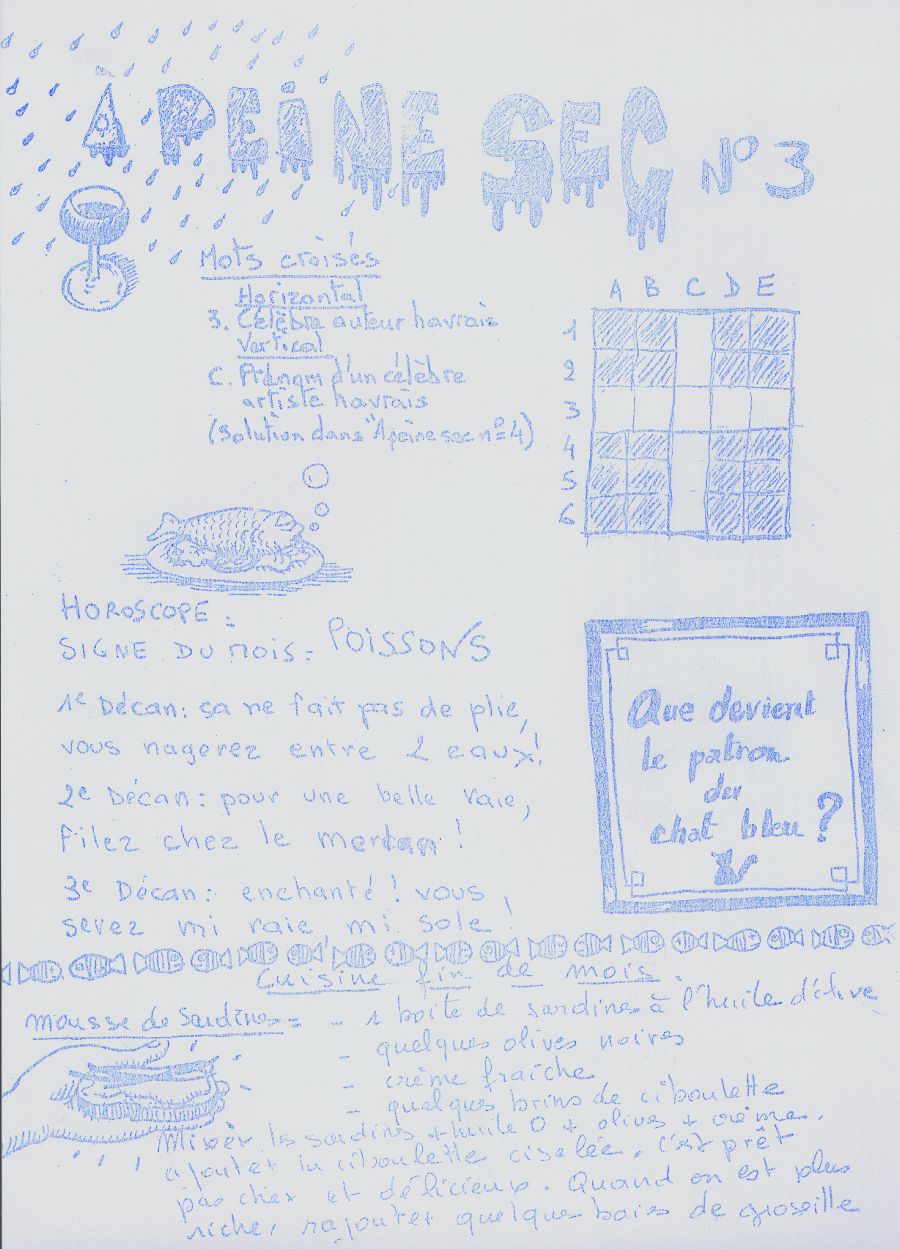 À PEINE SEC N° 3
Mots croisés
Horizontal
3. Célèbre auteur havrais
Vertical
C. Prénom d'un célèbre
artiste havrais
(Solution dans "A peine sec n° 4)
A B C D E
1
2
3
4
5
6
HOROSCOPE :
SIGNE DU MOIS : POISSONS
1e Décan : sa ne fait pas de plie,
vous nagerez entre 2 eaux !
2e Décan : pour une belle raie,
filez chez le merlan !
3e Décan : enchanté ! vous
serez mi raie, mi sole !
Que devient
le patron
du
chat bleu ?
Cuisine fin de mois :
Mousse de Sardines :
- 1 boîte de sardines à l'huile d'olive
- quelques olives noires
- crème fraîche
- quelques brins de ciboulette
Mixer les sardines + huile O + olives + crème.
ajouter la ciboulette ciselée. C'est prêt
pas cher et délicieux. Quand on est plus
riche, rajouter quelques baies de groseille